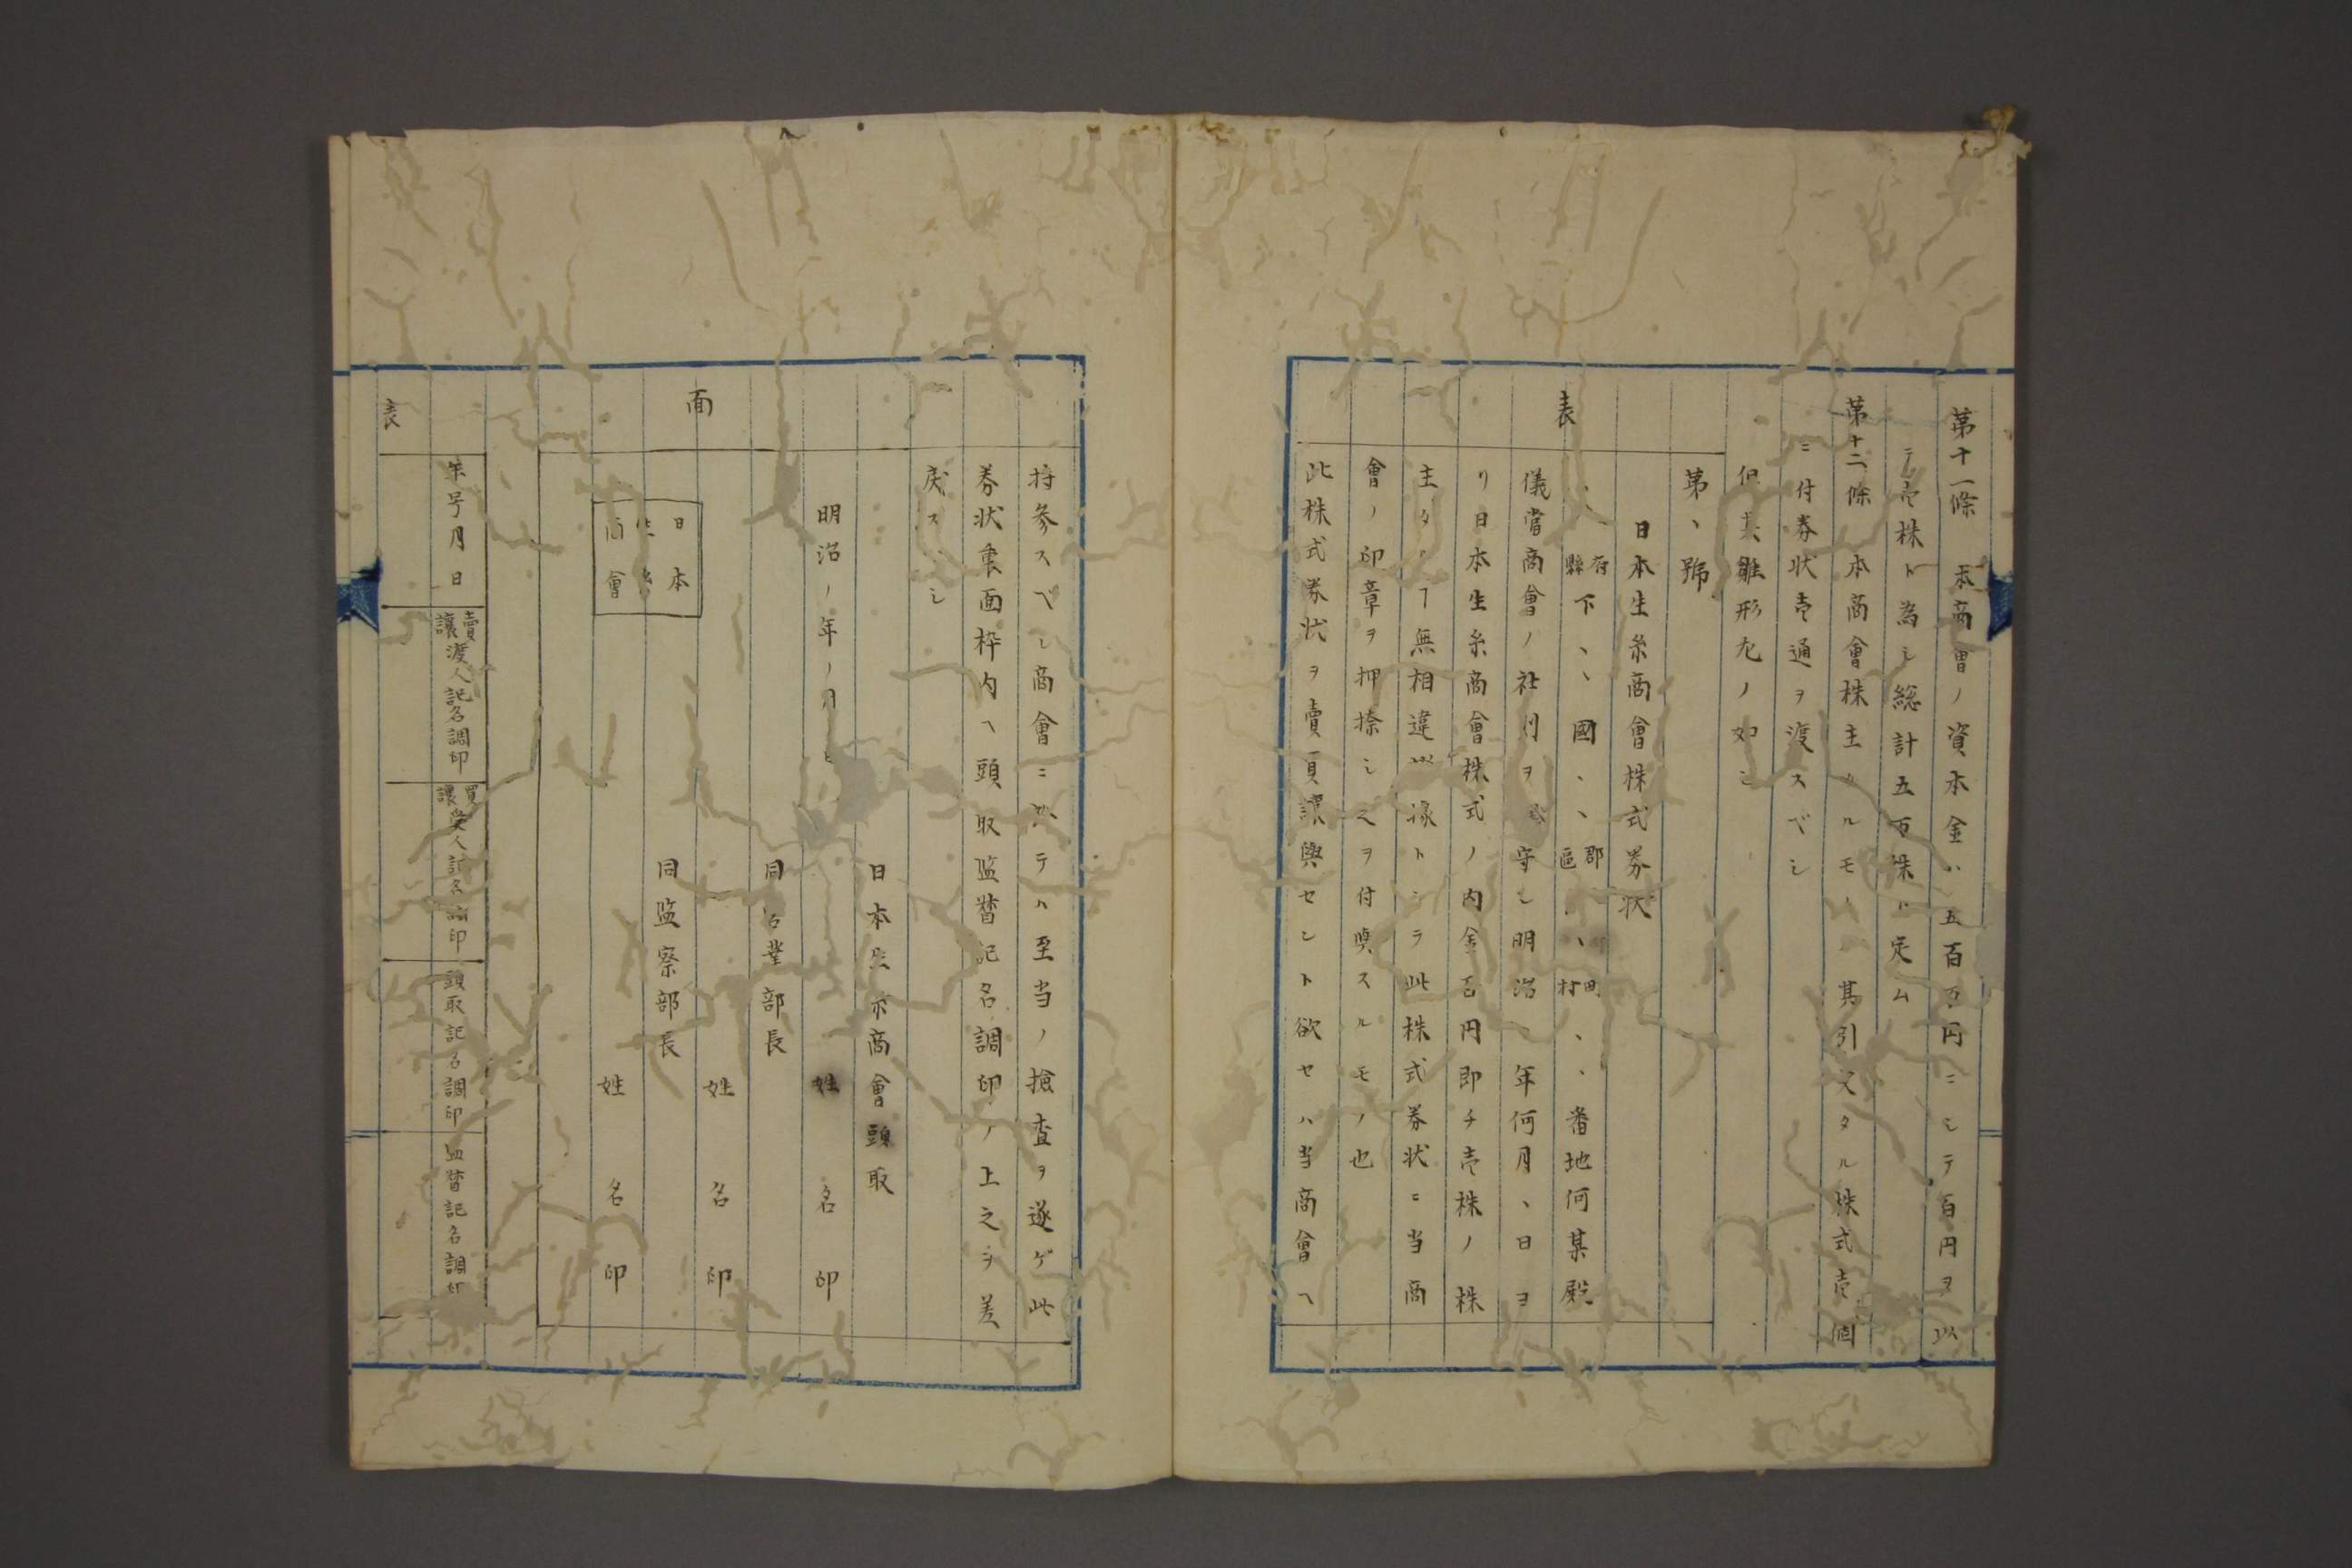 第十一條　本商會ノ資本金ハ五百万円ニシテ百円ヲ以
テ壱株ト為シ総計五万株ト定ム
第十二條　本商會株主タルモノハ其引受タル株式壱個
ニ付券状壱通ヲ渡スベシ
但其雛形左ノ如シ
表
第、號
日本生糸商會株式券状
、、府縣下、、國、、郡區、、町村、、番地何某殿
儀當商會ノ社則ヲ守シ明治、年何月、日ヨ
リ日本生糸商會株式ノ内金百円即チ壱株ノ株
主タルコ無相違 據トシテ此株式券状ニ当商
會ノ印章ヲ押捺シ之ヲ付與スルモノ也
此株式券状ヲ賣買譲與セント欲セハ当商會ヘ
面
持参スベシ商會ニ於テハ至当ノ撿査ヲ遂ゲ此
券状裏面枠内ヘ頭取監督記名調印ノ上之ヲ差
戻スベシ
日本生糸商會頭取
明治ノ年ノ月 姓名印
同 業部長
姓名印
同監察部長
日本生糸商會
姓名印
表
年号月日
賣譲渡人記名調印
買譲受人記名調印
頭取記名調印
監督記名調印